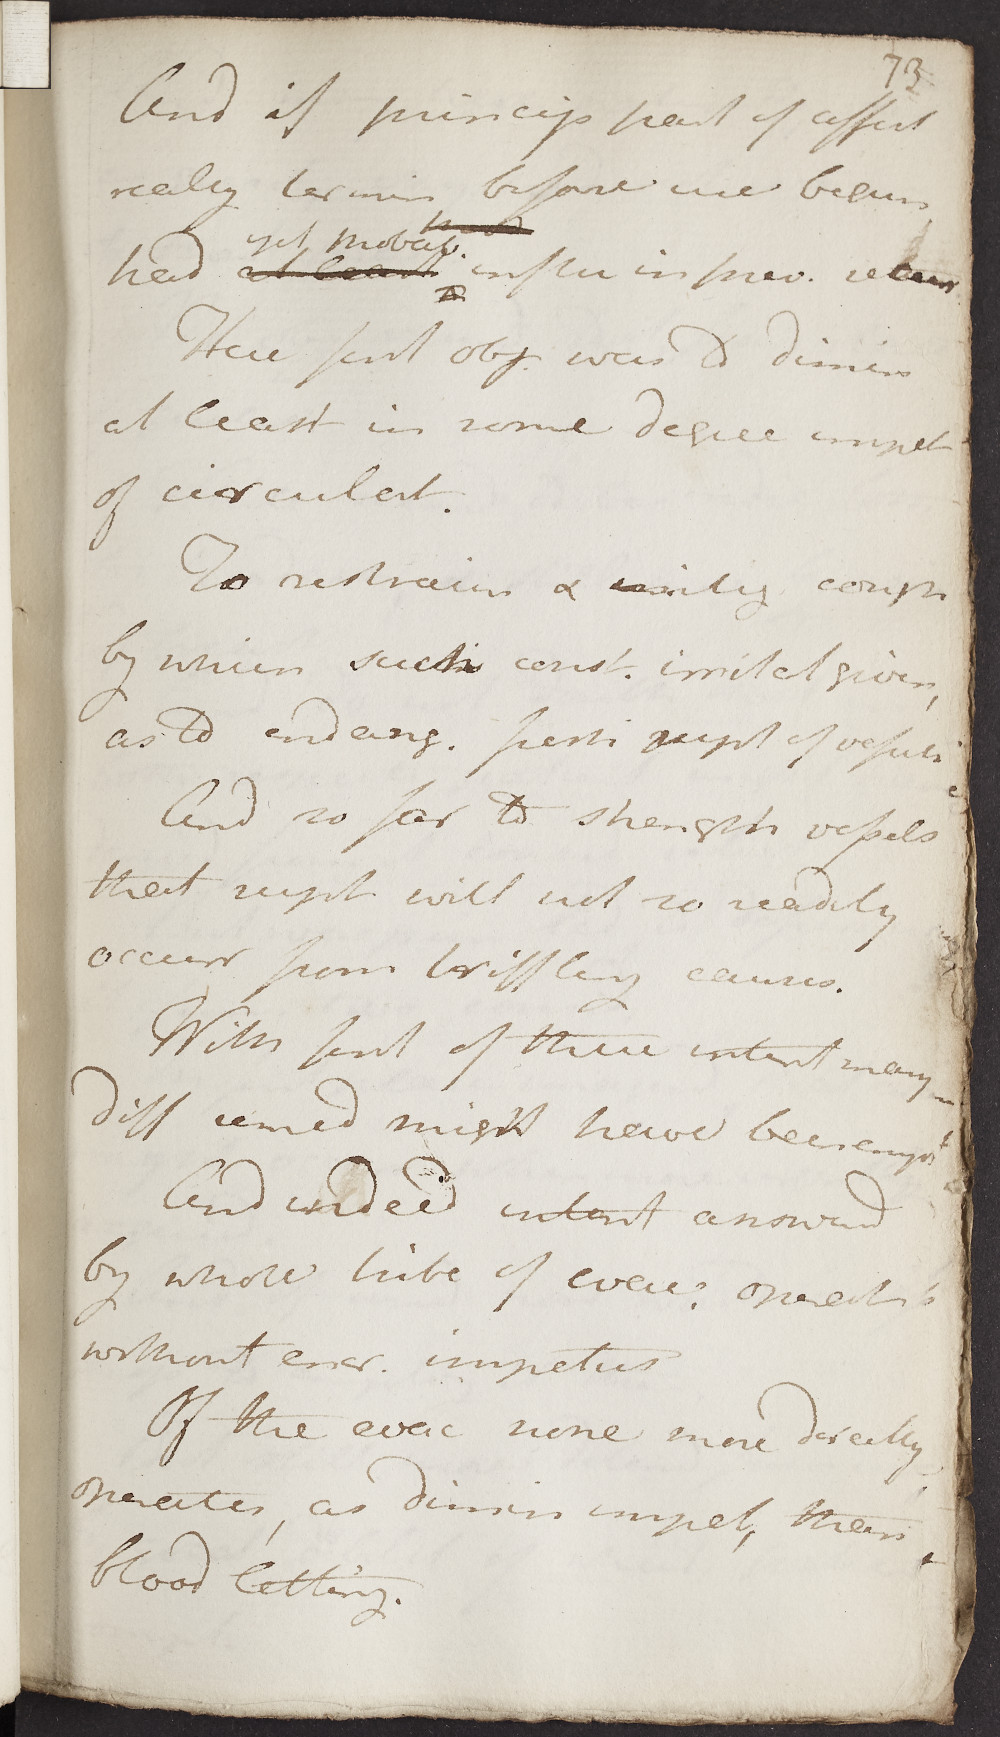 73
And if princip part of affect
really termin before we begun
had
yet probab.
had at least influ in prev. recurr
to
Here first obj. was to dimin
at least in some degree impet
of circulat.
To restrain & mitig cough
by which such const. irritat given,
as to endang. fresh rupt of vessels
And so far to strength vessels
that rupt will not so readily
occurr from triffling causes.
With first of these intent many
diff remed might have been empl
And indeed intent answerd
by whole tribe of evac. operat
without encr. impetus
Of the evac none more directly
operates, as dimin impet, than
blood letting.